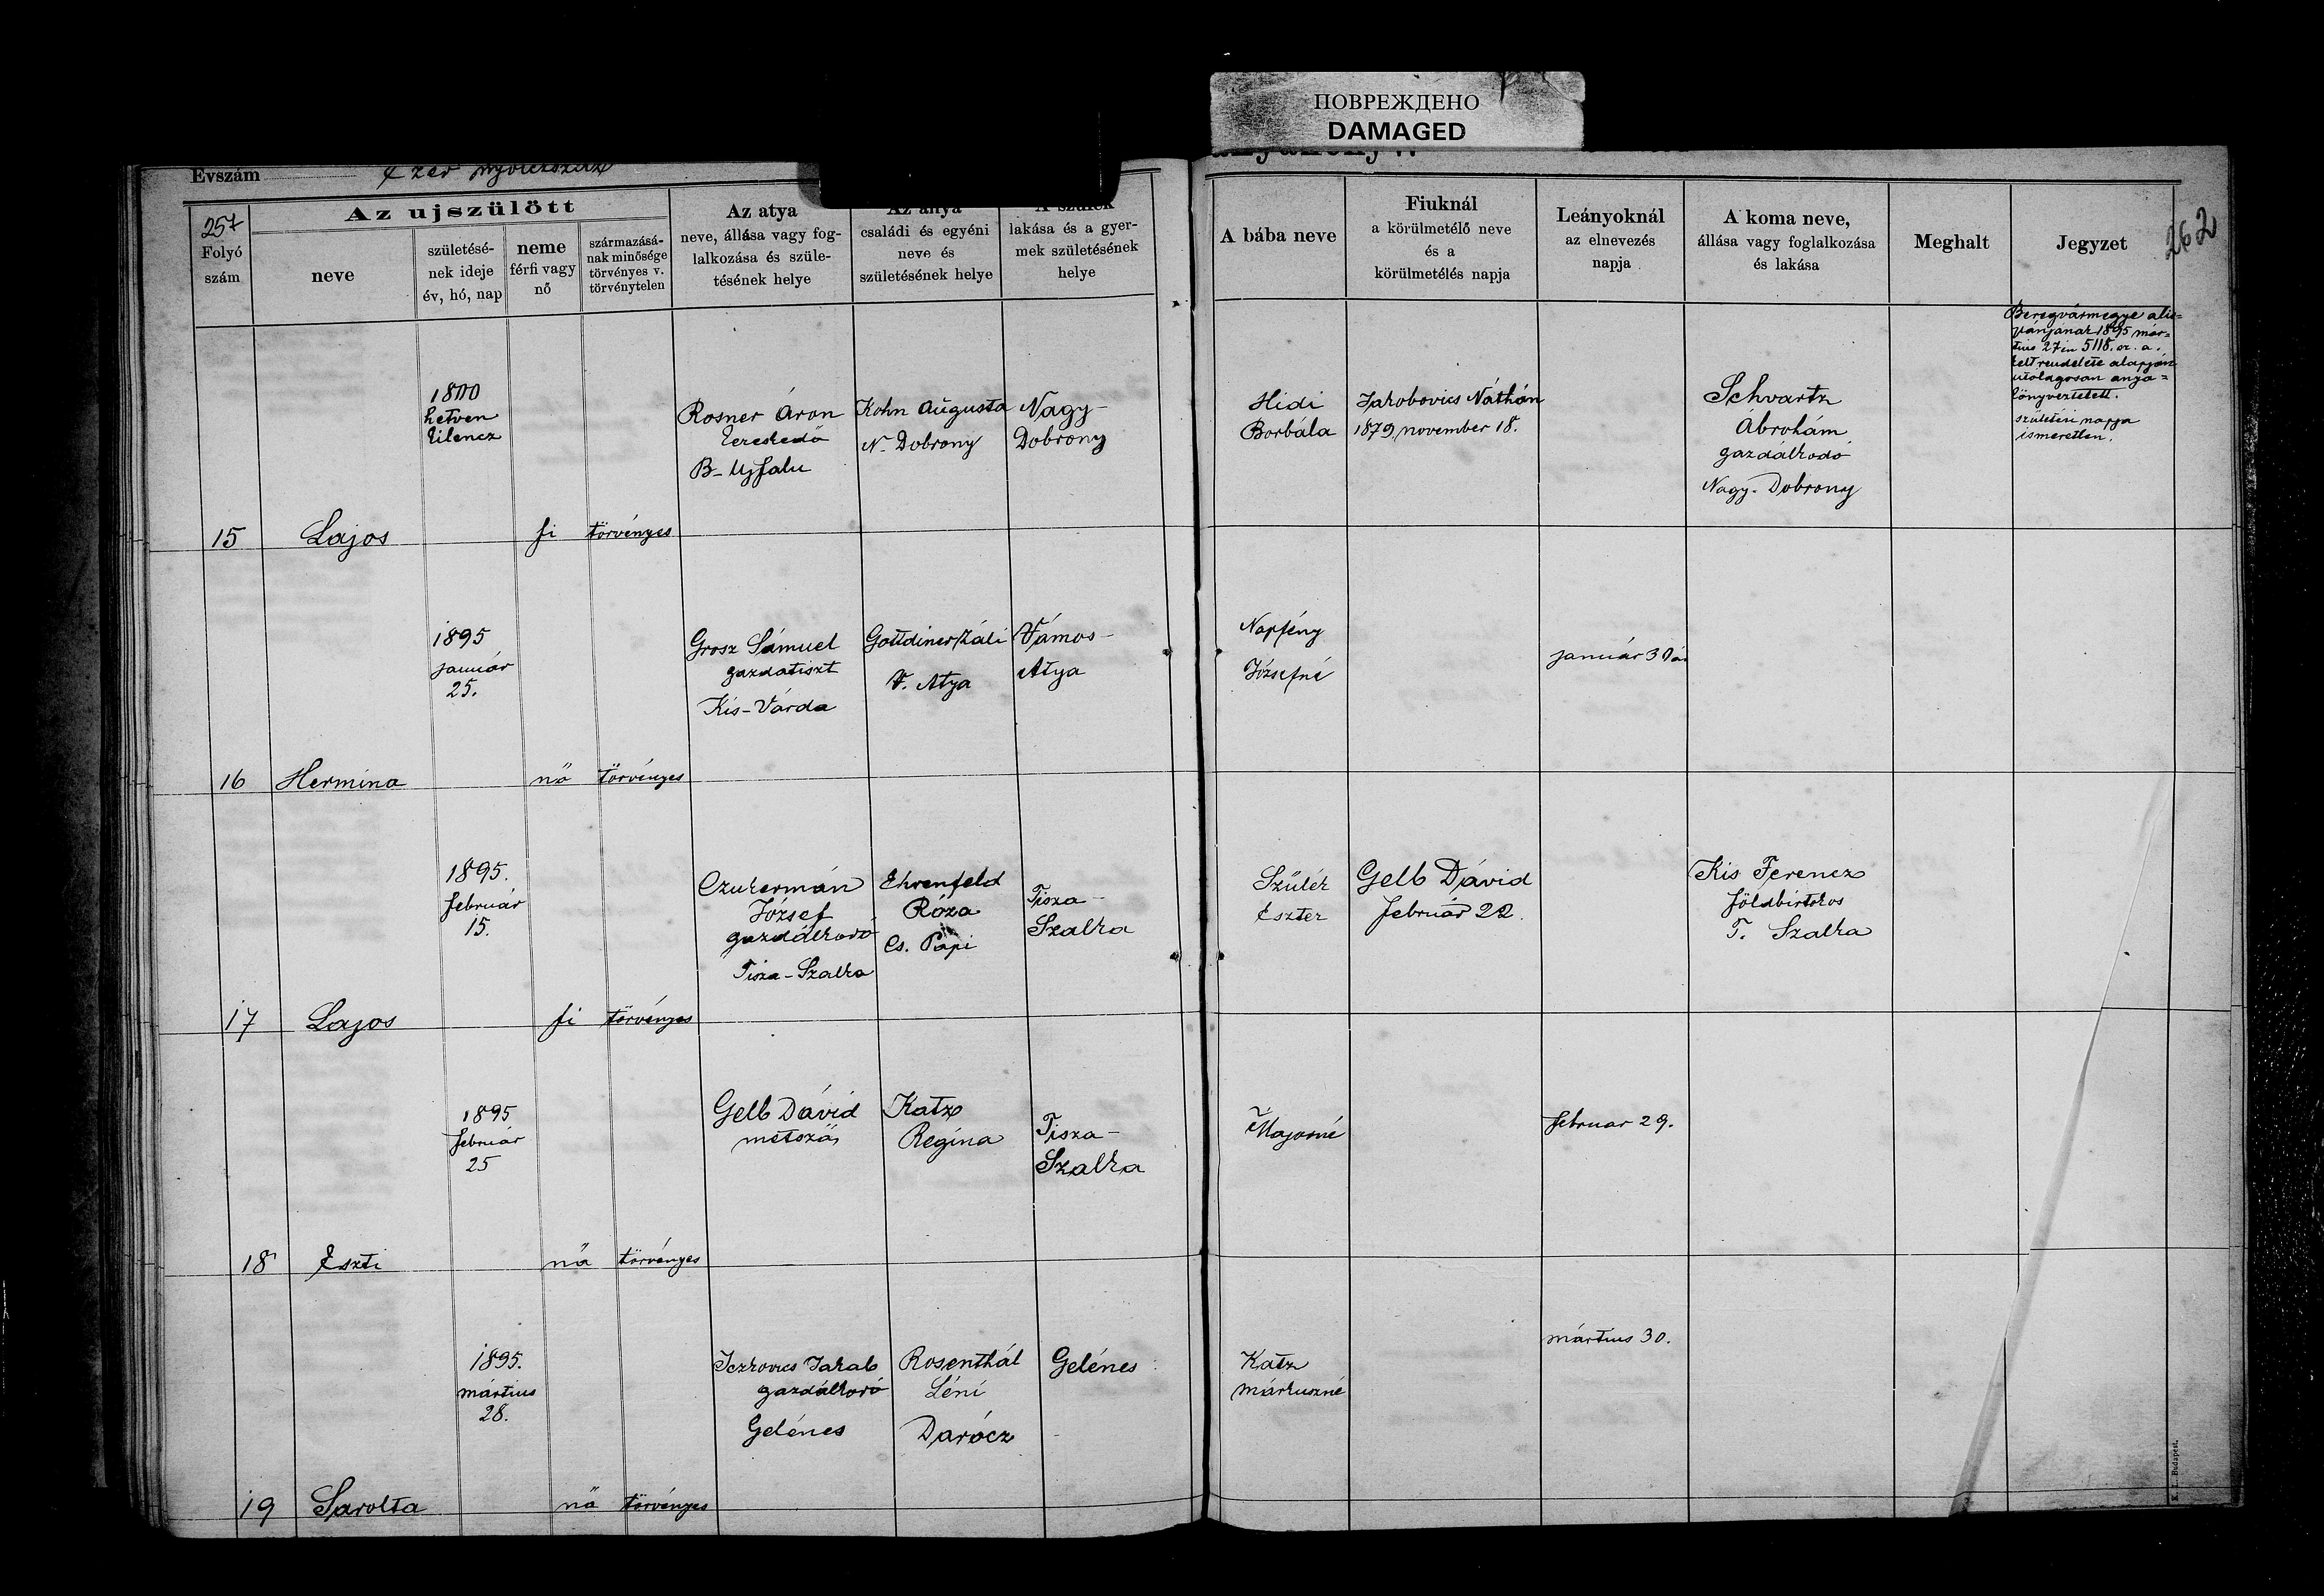 ПОВРЕЖДЕНО
DAMAGED
Evszám
Ezer nyolczszáz
257
262
Folyó
szám
Az ujszülött
neve
születésé-
nek ideje
év, hó, nap
neme
férfi vagy
nő
származásá-
nak minősége
törvényes v.
törvénytelen
Az atya
neve, állása vagy fog-
lalkozása és szüle-
tésének helye
Az anya
családi és egyéni
neve és
születésének helye
A szülék
lakása és a gyer-
mek születésének
helye
A bába neve
Fiuknál
a körülmetélő neve
és a
körülmetélés napja
Leányoknál
az elnevezés
napja
A koma neve,
állása vagy foglalkozása
és lakása
Meghalt
Jegyzet
15
Lajos
1800
hetven
kilencz
fi
törvényes
Rosner Áron
kereskedő
B-Ujfalu
Kohn Augusta
N. Dobrony
Nagy-
Dobrony
Hidi
Borbála
Jakobovics Náthán
1879 november 18.
Schvartz
Ábrohám
gazdálkodó
Nagy-Dobrony
Beregvármegye alis-
pánjának 1895 már-
tius 27én 5118. sz. a.
kelt rendelete alapján
utólagosan anya-
könyveztetett.
születési napja
ismeretlen.
16
Hermina
1895
január
25.
nő
törvényes
Grosz Sámuel
gazdatiszt
Kis-Várda
Gottdiner Záli
V. Atya
Vámos-
Atya
Napfény
Józsefné
január 30án
17
Lajos
1895.
február
15.
fi
törvényes
Czukermán
József
gazdálkodó
Tisza-Szalka
Ehrenfeld
Róza
Cs. Pápi
Tisza-
Szalka
Szülék
Eszter
Gelb Dávid
február 22.
Kis Ferencz
földbirtokos
T. Szalka
18
Eszti
1895
február
25
nő
törvényes
Gelb Dávid
metsző
Katz
Regina
Tisza-
Szalka
februar 29.
19
Sarolta
1895.
március
28.
nő
törvényes
Iczkovics Jakab
gazdálkodó
Gelénes
Rosenthál
Léni
Darócz
Gelénes
Katz
Márkuszné
mártius 30.
K. I. Budapest.